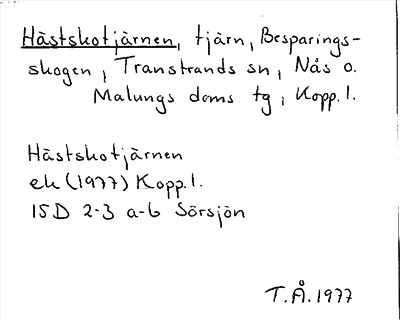 Hästskotjärnen, tjärn, Besparings-
skogen, Transtrands sn, Nås o.
Malungs doms tg, Kopp. l.
Hästskotjärnen
ek (1977) Kopp. l.
15D 2-3 a-b Sörsjön
T.Å. 1977